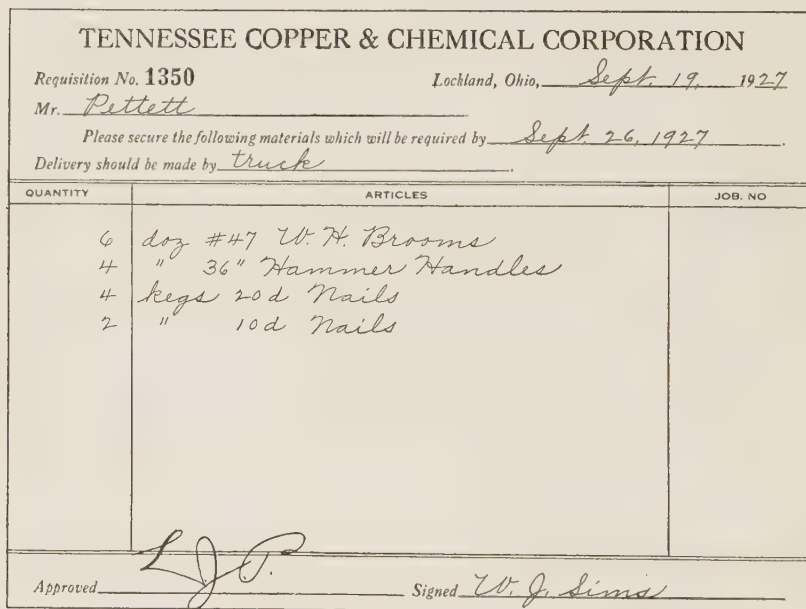 TENNESSEE COPPER & CHEMICAL CORPORATION
Requisition No. 1350 Lockland, Ohio, Sept. 19, 1927
Mr. Pettett
Please secure the following materials which will be required by Sept. 26, 1927.
Delivery should be made by truck.
QUANTITY ARTICLES JOB. NO
6 doz #47 W. H. Brooms
4 " 36" Hammer Handles
4 kegs 20d Nails
2 " 10d Nails
Approved L.J.P. Signed W. J. Sims